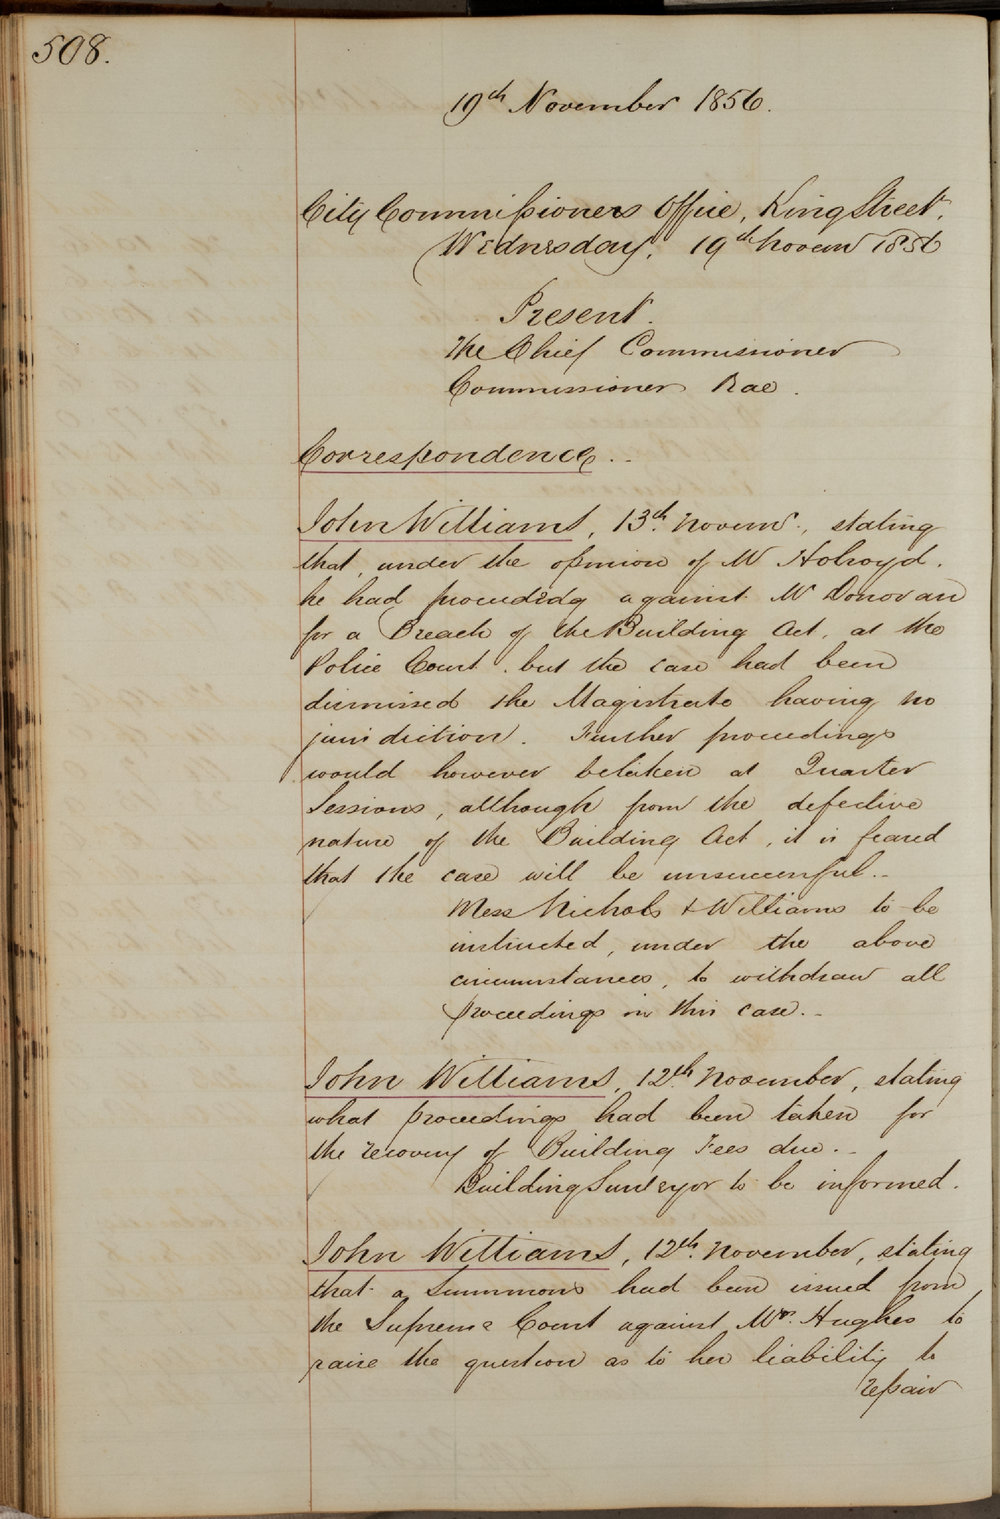 508.
19th November 1856.
City Commissioners Office, King Street,
Wednesday, 19th Novemr 1856
Present.
The Chief Commissioner
Commissioner Rae.
Correspondence..
John Williams, 13th Novemr., stating
that, under the opinion of Mr Holroyd.
he had proceeded against Mr Donovan
for a Breach of the Building Act, at the
Police Court. but the case had been
dismissed the Magistrate having no
jurisdiction. Further proceedings
would however be taken at Quarter
Sessions, although from the defective
nature of the Building Act, it is feared
that the case will be unsuccessful..
Mess Nichols & Williams to be
instructed, under the above
circumstances, to withdraw all
proceedings in this case..
John Williams, 12th November, stating
what proceedings had been taken for
the recovery of Building Fees due..
Building Surveyor to be informed.
John Williams, 12th November, stating
that a Summons had been issued from
the Supreme Court against Mrs. Hughes to
raise the question as to her liability to
repair